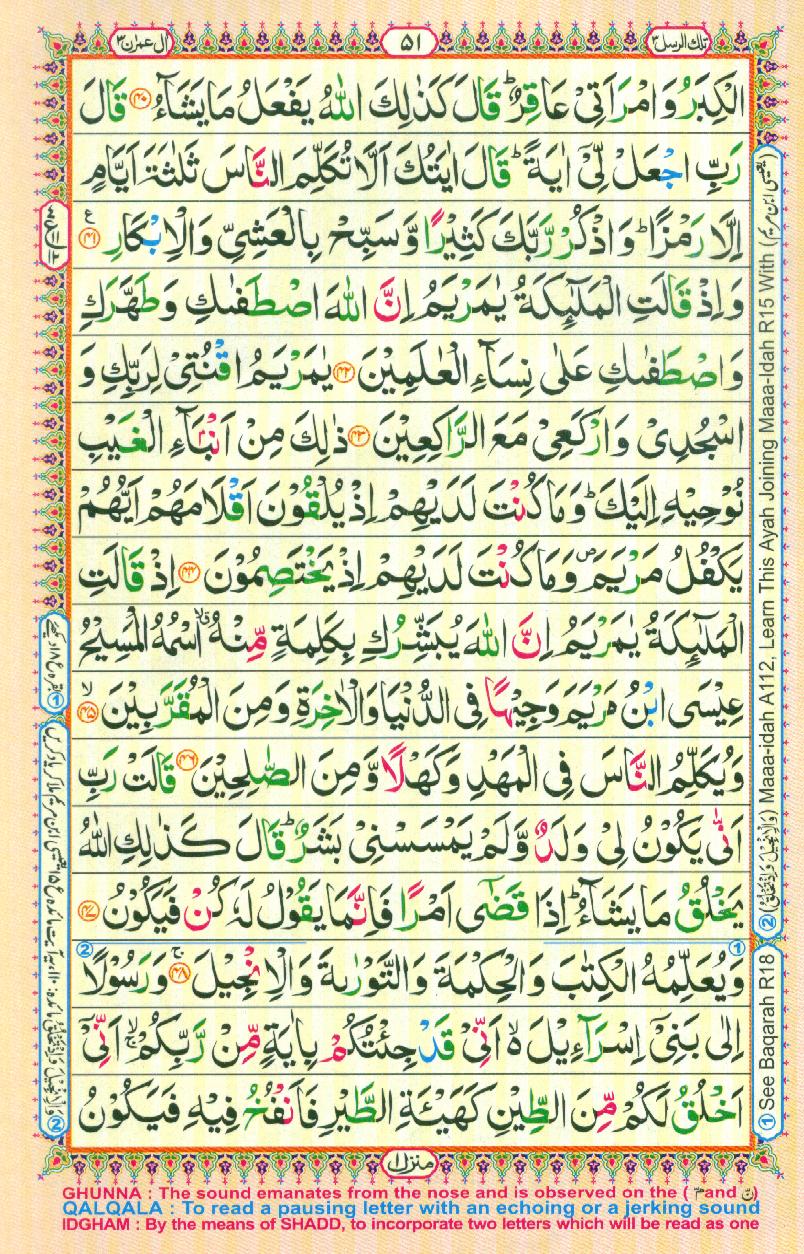 تلك الرسل ٣
٥١
ال عمرٰن ٣
الْكِبَرُ وَامْرَاَتِىْ عَاقِرٌ ؕ قَالَ كَذٰلِكَ اللّٰهُ يَفْعَلُ مَا يَشَآءُ ﴿۴۰﴾ قَالَ
رَبِّ اجْعَلْ لِّىْٓ اٰيَةً ؕ قَالَ اٰيَتُكَ اَلَّا تُكَلِّمَ النَّاسَ ثَلٰثَةَ اَيَّامٍ
اِلَّا رَمْزًا ؕ وَاذْكُرْ رَّبَّكَ كَثِيْرًا وَّسَبِّحْ بِالْعَشِىِّ وَالْاِبْكَارِ ﴿۴۱﴾ ع
وَاِذْ قَالَتِ الْمَلٰٓئِكَةُ يٰمَرْيَمُ اِنَّ اللّٰهَ اصْطَفٰىكِ وَطَهَّرَكِ
وَاصْطَفٰىكِ عَلٰى نِسَآءِ الْعٰلَمِيْنَ ﴿۴۲﴾ يٰمَرْيَمُ اقْنُتِىْ لِرَبِّكِ وَ
اسْجُدِىْ وَارْكَعِىْ مَعَ الرَّاكِعِيْنَ ﴿۴۳﴾ ذٰلِكَ مِنْ اَنْۢبَآءِ الْغَيْبِ
نُوْحِيْهِ اِلَيْكَ ؕ وَمَا كُنْتَ لَدَيْهِمْ اِذْ يُلْقُوْنَ اَقْلَامَهُمْ اَيُّهُمْ
يَكْفُلُ مَرْيَمَ ۪ وَمَا كُنْتَ لَدَيْهِمْ اِذْ يَخْتَصِمُوْنَ ﴿۴۴﴾ اِذْ قَالَتِ
الْمَلٰٓئِكَةُ يٰمَرْيَمُ اِنَّ اللّٰهَ يُبَشِّرُكِ بِكَلِمَةٍ مِّنْهُ ۖۗ اسْمُهُ الْمَسِيْحُ
عِيْسَى ابْنُ مَرْيَمَ وَجِيْهًا فِى الدُّنْيَا وَالْاٰخِرَةِ وَمِنَ الْمُقَرَّبِيْنَ ﴿۴۵﴾ ۙ
وَيُكَلِّمُ النَّاسَ فِى الْمَهْدِ وَكَهْلًا وَّمِنَ الصّٰلِحِيْنَ ﴿۴۶﴾ قَالَتْ رَبِّ
اَنّٰى يَكُوْنُ لِىْ وَلَدٌ وَّلَمْ يَمْسَسْنِىْ بَشَرٌ ؕ قَالَ كَذٰلِكِ اللّٰهُ
يَخْلُقُ مَا يَشَآءُ ؕ اِذَا قَضٰٓى اَمْرًا فَاِنَّمَا يَقُوْلُ لَهٗ كُنْ فَيَكُوْنُ ﴿۴۷﴾
1
2
وَيُعَلِّمُهُ الْكِتٰبَ وَالْحِكْمَةَ وَالتَّوْرٰىةَ وَالْاِنْجِيْلَ ﴿۴۸﴾ ۚ وَرَسُوْلًا
اِلٰى بَنِىْٓ اِسْرَآءِيْلَ ۙ۬ اَنِّىْ قَدْ جِئْتُكُمْ بِاٰيَةٍ مِّنْ رَّبِّكُمْ ۙۚ اَنِّىْٓ
اَخْلُقُ لَكُمْ مِّنَ الطِّيْنِ كَهَيْئَةِ الطَّيْرِ فَاَنْفُخُ فِيْهِ فَيَكُوْنُ
1 See Baqarah R18
2 (وَالْاِنْجِيْلَ وَاِذْ تَخْلُقُ) Maaa-idah A112, Learn This Ayah Joining Maaa-Idah R15 With (يٰعيسى ابن مريم)
منزل ١
GHUNNA : The sound emanates from the nose and is observed on the ( مّ and نّ )
QALQALA : To read a pausing letter with an echoing or a jerking sound
IDGHAM : By the means of SHADD, to incorporate two letters which will be read as one